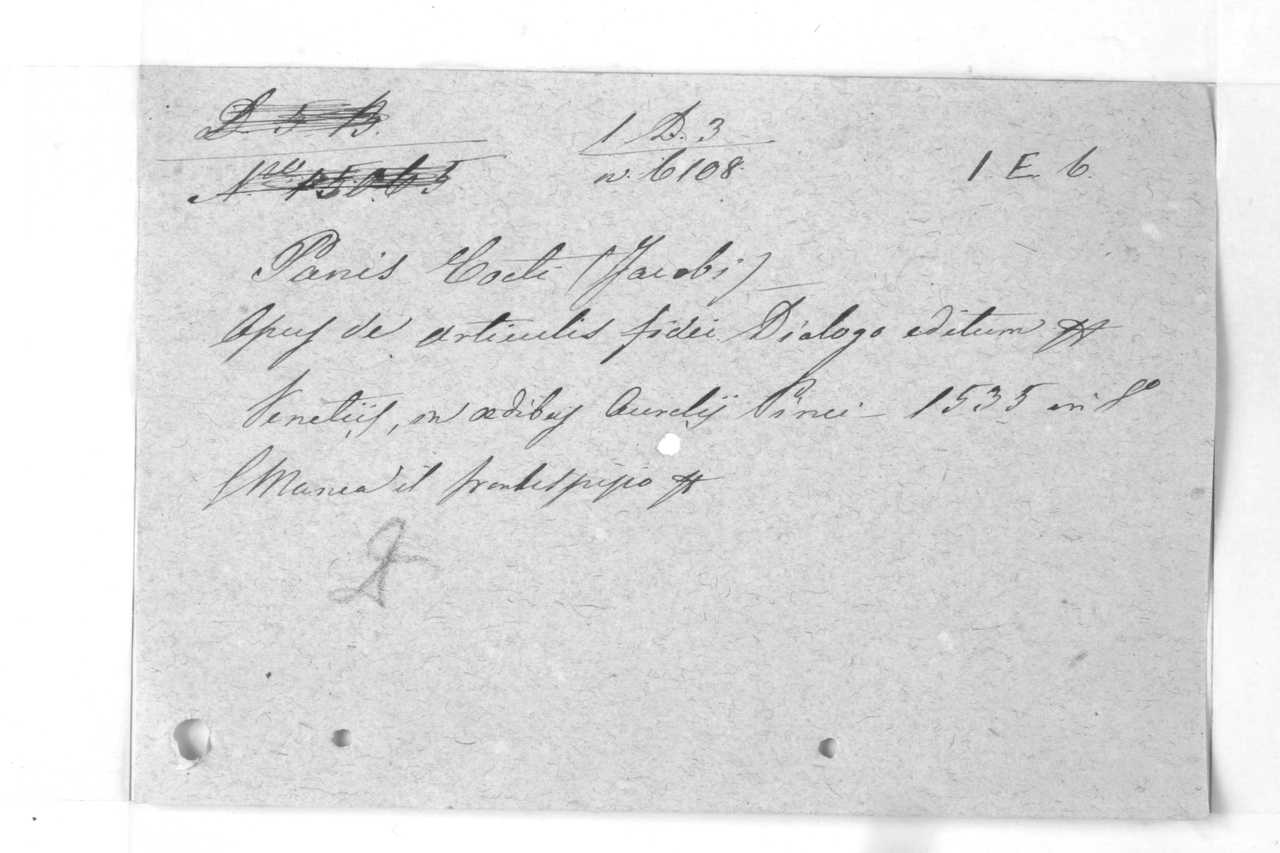 D. 5 B. 1 D. 3
Nro 15065 n. 6108. 1 E 6.
Panis Cocti (Jacobi)
Opus de articulis fidei Dialogo editum
Venetijs, in ædibus Aurelij Pincij 1535 in 8º
Manca il frontespizio